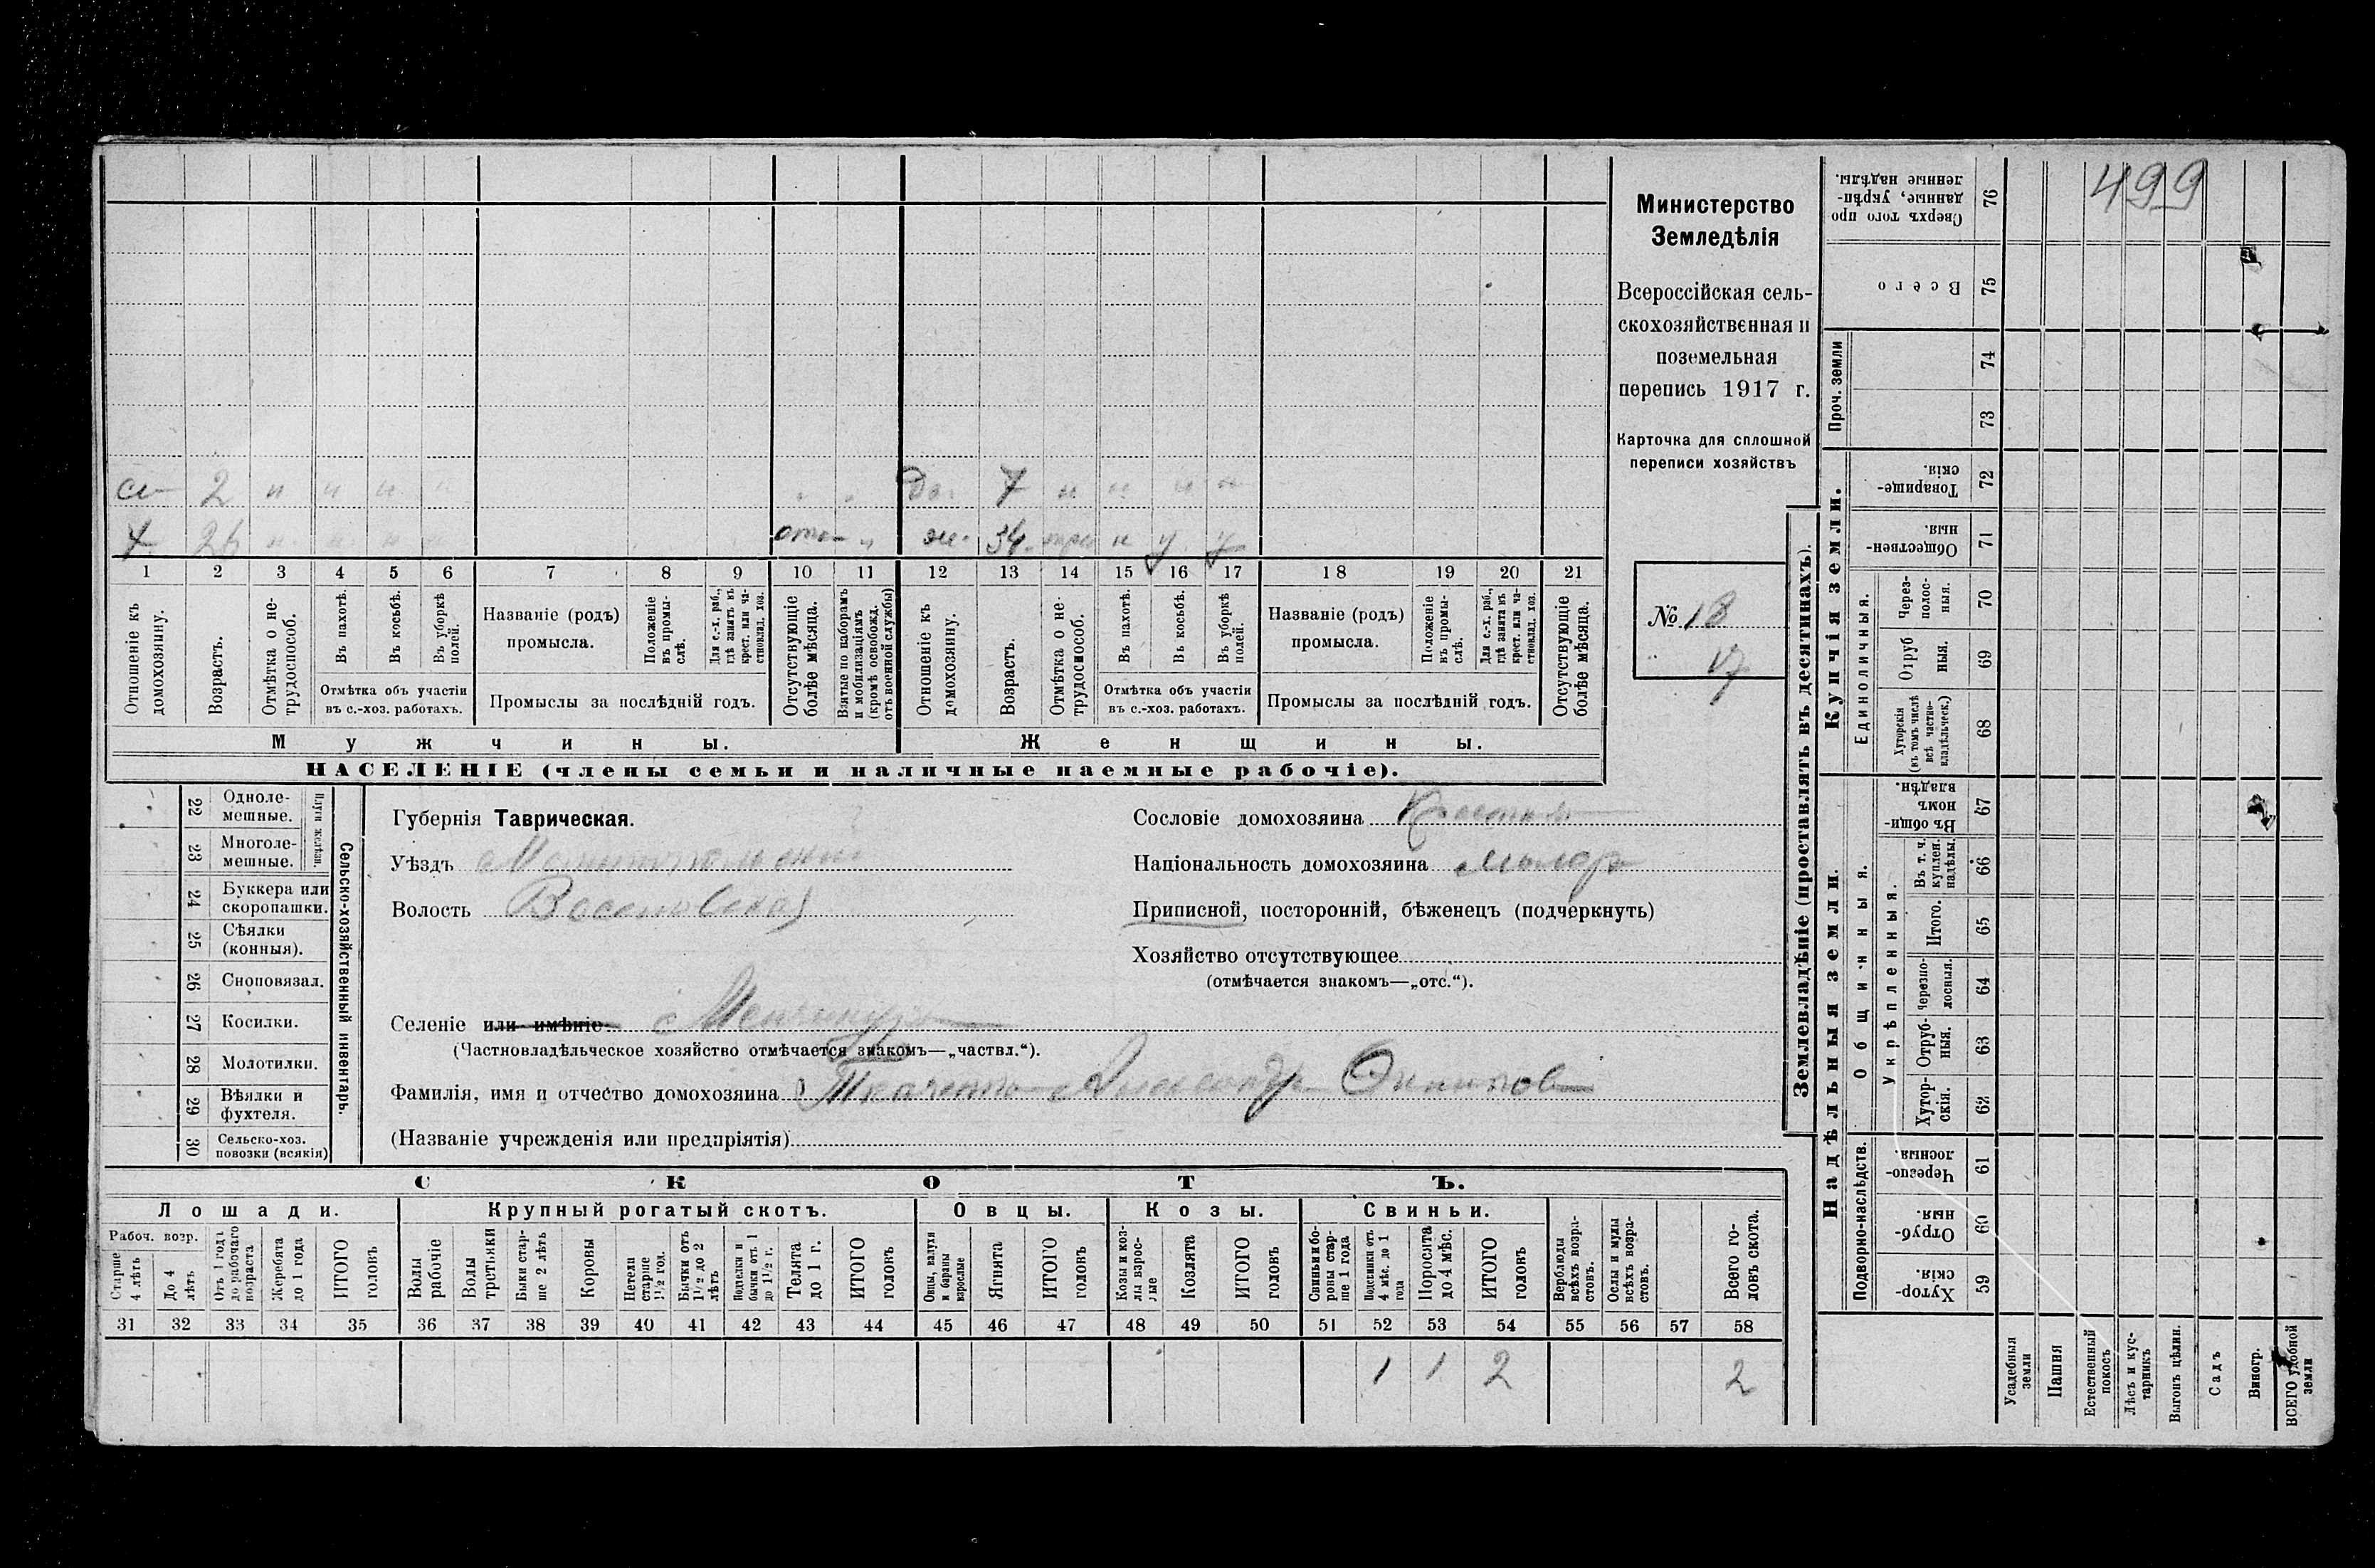 499
Министерство
Земледѣлія
Всероссійская сель-
скохозяйственная и
поземельная
перепись 1917 г.
Карточка для сплошной
переписи хозяйствъ
№ 18
17
2 7
отс. ж. 34
1 2 3 4 5 6 7 8 9 10 11 12 13 14 15 16 17 18 19 20 21
Отношеніе къ домохозяину.
Возрастъ.
Отмѣтка о не-трудоспособ.
Въ пахотѣ.
Въ косьбѣ.
Въ уборкѣ полей.
Отмѣтка объ участіи
въ с.-хоз. работахъ.
Названіе (родъ)
промысла.
Положеніе въ промы-слѣ.
Для с.-х. раб., гдѣ занятъ въ крест. или ча-стновлад. хоз.
Промыслы за послѣдній годъ.
Отсутствующіе болѣе мѣсяца.
Взятые по наборамъ и мобилизаціямъ (кромѣ освобожд. отъ военной службы)
Отношеніе къ домохозяину.
Возрастъ.
Отмѣтка о не-трудоспособ.
Въ пахотѣ.
Въ косьбѣ.
Въ уборкѣ полей.
Отмѣтка объ участіи
въ с.-хоз. работахъ.
Названіе (родъ)
промысла.
Положеніе въ промы-слѣ.
Для с.-х. раб., гдѣ занята въ крест. или ча-стновлад. хоз.
Промыслы за послѣдній годъ.
Отсутствующіе болѣе мѣсяца.
Мужчины.
Женщины.
НАСЕЛЕНІЕ (члены семьи и наличные наемные рабочіе).
Сельско-хозяйственный инвентарь.
22 Одноле-мешные.
23 Многоле-мешные.
24 Буккера или скоропашки.
25 Сѣялки (конныя).
26 Сноповязал.
27 Косилки.
28 Молотилки.
29 Вѣялки и фухтеля.
30 Сельско-хоз. повозки (всякія)
Губернія Таврическая.
Уѣздъ Мелитопольскій
Волость
Селеніе или имѣніе
(Частновладѣльческое хозяйство отмѣчается знакомъ—„частвл.“).
Фамилія, имя и отчество домохозяина Ткаченко Александръ
(Названіе учрежденія или предпріятія)
Сословіе домохозяина
Національность домохозяина малор
Приписной, посторонній, бѣженецъ (подчеркнуть)
Хозяйство отсутствующее
(отмѣчается знакомъ—„отс.“).
СКОТЪ.
Лошади.
Крупный рогатый скотъ.
Овцы.
Козы.
Свиньи.
Рабоч. возр.
Старше 4 лѣтъ
До 4 лѣтъ
Отъ 1 года до рабочаго возраста
Жеребята до 1 года
ИТОГО головъ
Волы рабочіе
Волы третьяки
Быки стар-ше 2 лѣтъ
Коровы
Нетели старше 1½ год.
Бычки отъ 1½ до 2 лѣтъ
Подтелки и бычки отъ 1 до 1½ г.
Телята до 1 г.
ИТОГО головъ
Овцы, валухи и бараны взрослые
Ягнята
ИТОГО головъ
Козы и коз-лы взрос-лые
Козлята
ИТОГО головъ
Свиньи и бо-ровы стар-ше 1 года
Подсвинки отъ 4 мѣс. до 1 года
Поросята до 4 мѣс.
ИТОГО головъ
Верблюды всѣхъ возра-стовъ.
Ослы и мулы всѣхъ возра-стовъ.
Всего го-ловъ скота.
31 32 33 34 35 36 37 38 39 40 41 42 43 44 45 46 47 48 49 50 51 52 53 54 55 56 57 58
1 1 2 2
Землевладѣніе (проставлять въ десятинахъ).
Купчія земли.
Надѣльныя земли.
Проч. земли
Единоличныя.
Общинныя.
Укрѣпленныя.
Подворно-наслѣдств.
76 Сверхъ того про данные, укрѣп-ленные надѣлы.
75 Всего
74
73
72 Товарище-скія.
71 Обществен-ныя.
70 Через-полос-ныя.
69 Отруб ныя.
68 Хуторскія (въ томъ числѣ всѣ частно-владѣльческ.)
67 Въ общи-номъ владѣн.
66 Въ т. ч. куплен. надѣлы.
65 Итого.
64 Черезпо-лосныя.
63 Отруб-ныя.
62 Хутор-скія.
61 Черезпо-лосныя.
60 Отруб-ныя.
59 Хутор-скія.
Усадебныя земли
Пашня
Естественный покосъ
Лѣсъ и кус-тарникъ
Выгонъ цѣлин.
Садъ
Виногр.
ВСЕГО удобной земли